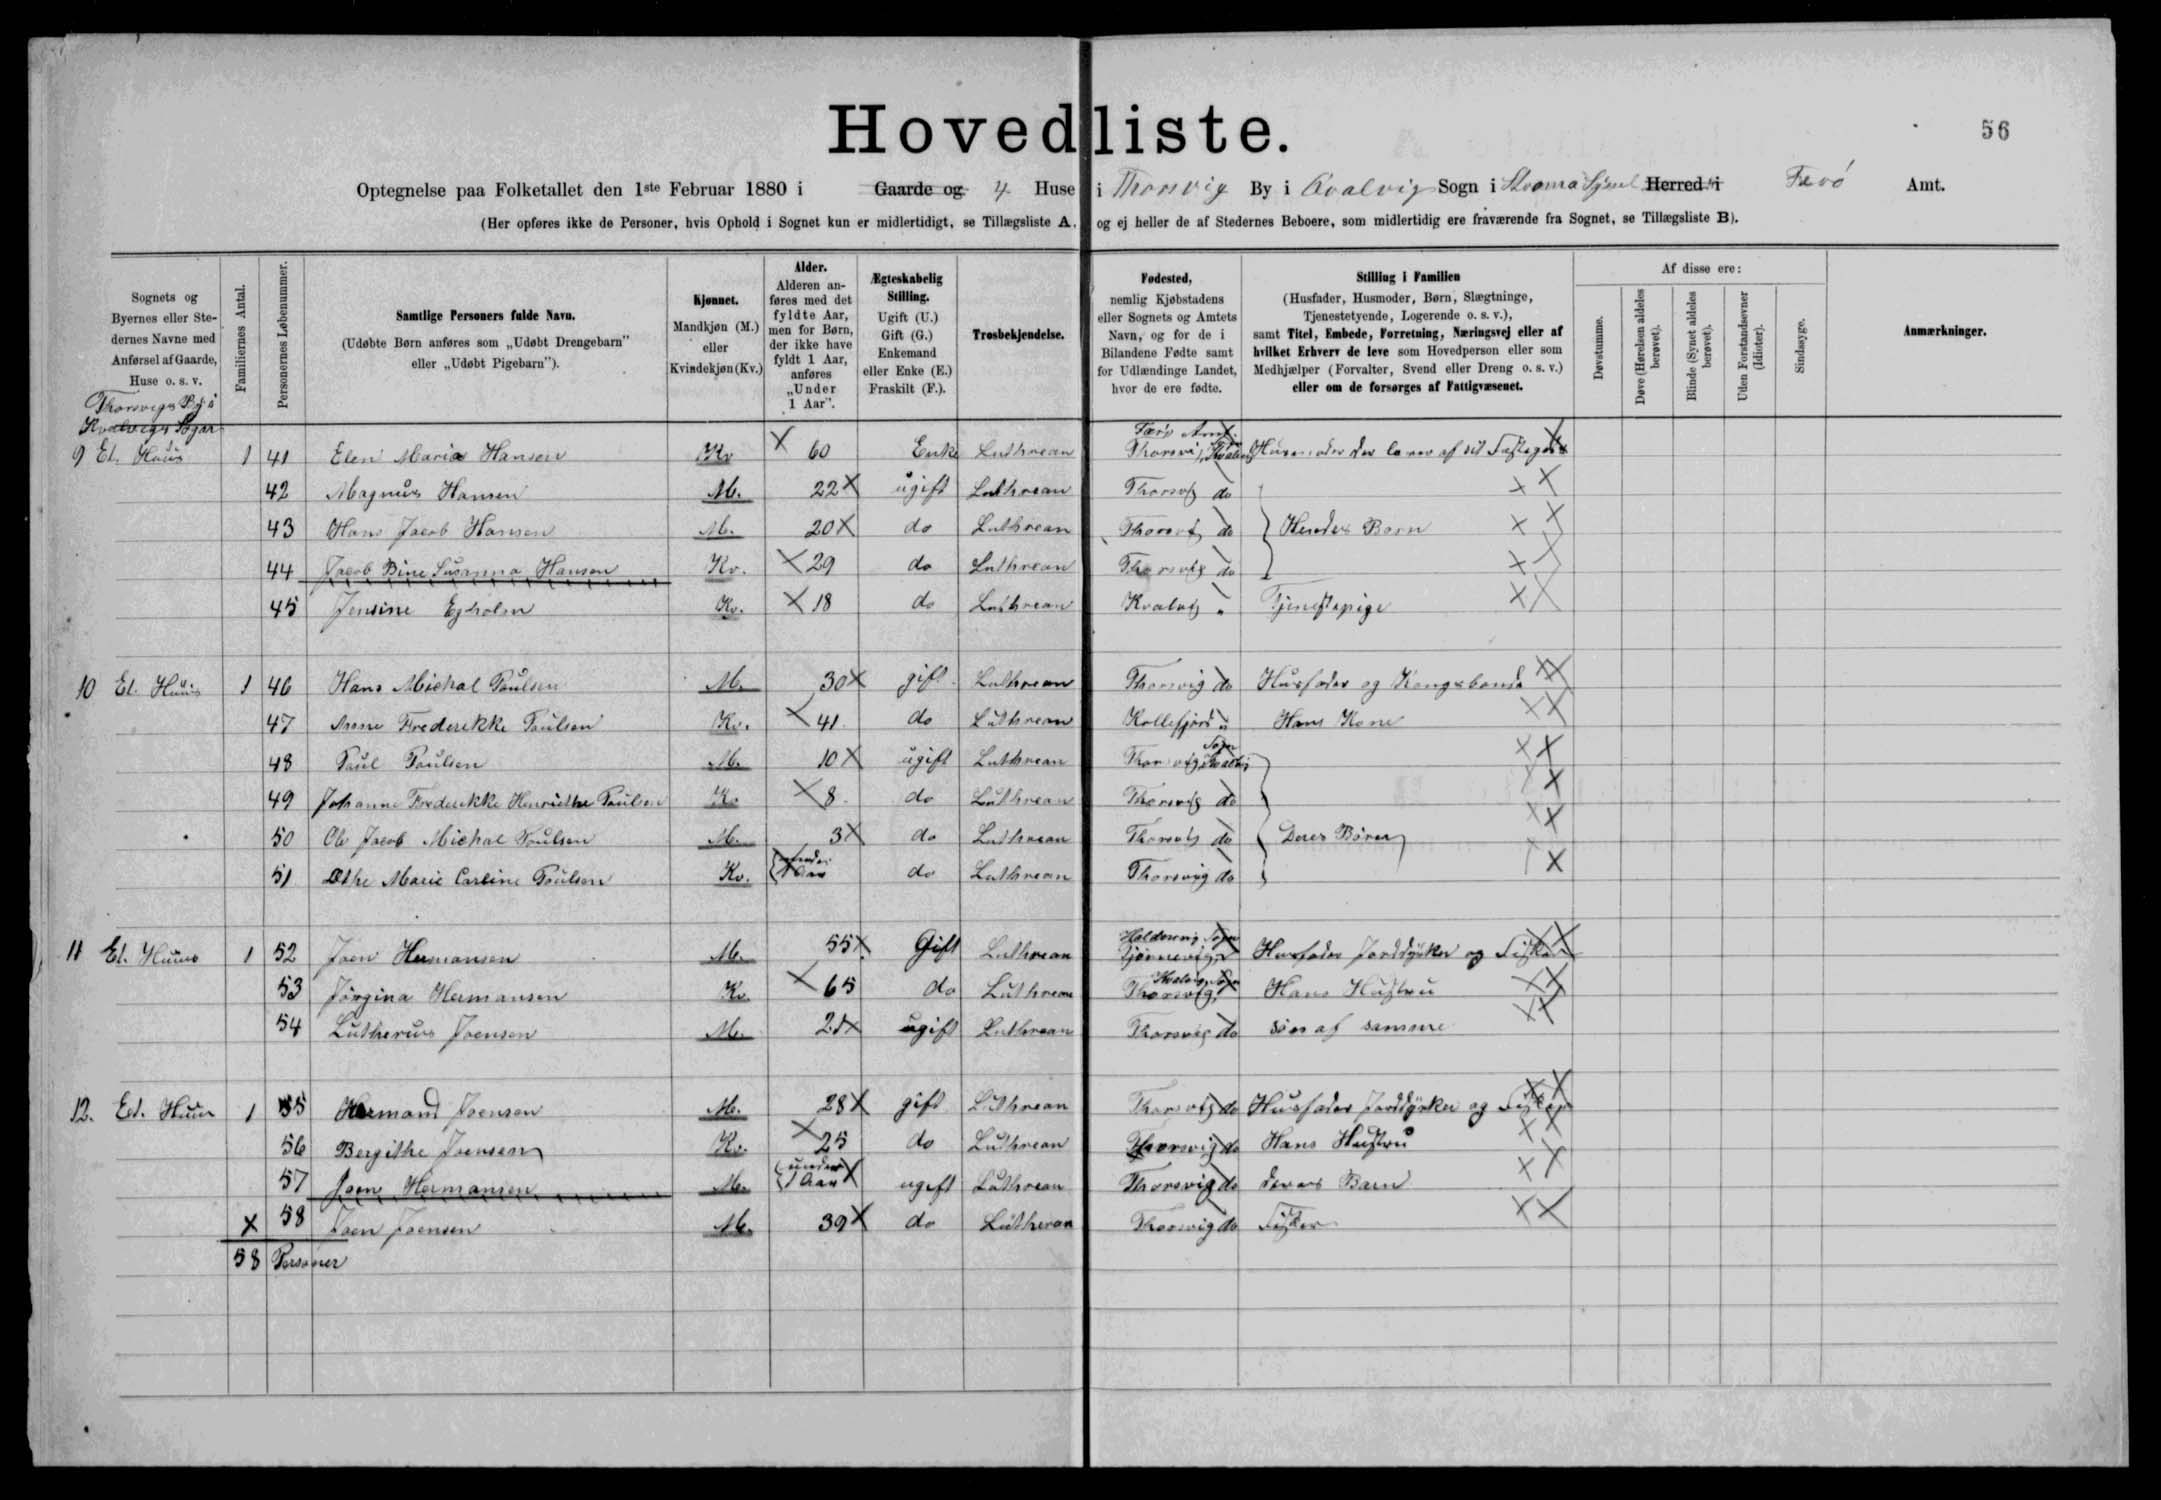 Hovedliste.
56
Optegnelse paa Folketallet den 1ste Februar 1880 i Gaarde og 4 Huse i Thorsvig By i Qvalvig Sogn i Strømø Syssel Herred i Færø Amt.
(Her opføres ikke de Personer, hvis Ophold i Sognet kun er midlertidigt, se Tillægsliste A, og ej heller de af Stedernes Beboere, som midlertidig ere fraværende fra Sognet, se Tillægsliste B).
Sognets og Byernes eller Stedernes Navne med Anførsel af Gaarde, Huse o. s. v.
Familiernes Antal.
Personernes Løbenummer.
Samtlige Personers fulde Navn.
(Udøbte Børn anføres som „Udøbt Drengebarn" eller „Udøbt Pigebarn").
Kjønnet.
Mandkjøn (M.) eller Kvindekjøn (Kv.)
Alder.
Alderen anføres med det fyldte Aar, men for Børn, der ikke have fyldt 1 Aar, anføres „Under 1 Aar".
Ægteskabelig Stilling.
Ugift (U.) Gift (G.) Enkemand eller Enke (E.) Fraskilt (F.).
Trosbekjendelse.
Fødested,
nemlig Kjøbstadens eller Sognets og Amtets Navn, og for de i Bilandene Fødte samt for Udlændinge Landet, hvor de ere fødte.
Stilling i Familien
(Husfader, Husmoder, Børn, Slægtninge, Tjenestetyende, Logerende o. s. v.),
samt Titel, Embede, Forretning, Næringsvej eller af hvilket Erhverv de leve som Hovedperson eller som Medhjælper (Forvalter, Svend eller Dreng o. s. v.) eller om de forsørges af Fattigvæsenet.
Af disse ere:
Døvstumme.
Døve (Hørelsen aldeles berøvet).
Blinde (Synet aldeles berøvet).
Uden Forstandsevner (Idioter).
Sindssyge.
Anmærkninger.
Thorsvigs By i
Kvalvigs Sogn
Færø Amt.
9 Et Huus 1 41 Elen Maria Hansen Kv X 60 Enke Luthrean Thorsvig Husmoder der lever af sit
42 Magnus Hansen M. 22 X ugift Luthrean Thorsvig do
43 Hans Jacob Hansen M. 20 X do Luthrean Thorsvig do Hendes Børn
44 Jacob Bine Susanna Hansen Kv. X 29 do Luthrean Thorsvig do
45 Jensine Egholm Kv. X 18 do Luthrean Kvalvig " Tjenestepige
10 Et Huus 1 46 Hans Michal Poulsen M. 30 X gift Luthrean Thorsvig do Husfader og Kongsbonde
47 Anne Frederikke Poulsen Kv. X 41 do Luthrean Kollefjord " Hans Kone
48 Poul Poulsen M. 10 X ugift Luthrean Thorsvig Sogn Kvalvig
49 Johanne Frederikke Henriethe Poulsen Kv X 8 do Luthrean Thorsvig do
50 Ole Jacob Michal Poulsen M. 3 X do Luthrean Thorsvig do Deres Børn
51 Marie Carline Poulsen Kv. under 1 Aar do Luthrean Thorsvig do
11 Et Huus 1 52 Joen Hermansen M. 55 X Gift Luthrean Haldersvig Sogn Tjørnevig Husfader Jorddyrker og Fisker
53 Jørgina Hermansen Kv. X 65 do Luthrean Kvalvig Sogn Thorsvig Hans Hustru
54 Lutherus Joensen M. 21 X ugift Luthrean Thorsvig do søn af samme
12. Et. Huus 1 55 Hermand Joensen M. 28 X gift Luthrean Thorsvig do Husfader Jorddyrker og Fisker
56 Bergithe Joensen Kv. X 25 do Luthrean Thorsvig do Hans Hustru
57 Joen Hermansen M. under 1 Aar X ugift Luthrean Thorsvig do deres Barn
X 58 Joen Joensen M. 39 X do Lutheran Thorsvig do Fisker
58 Personer